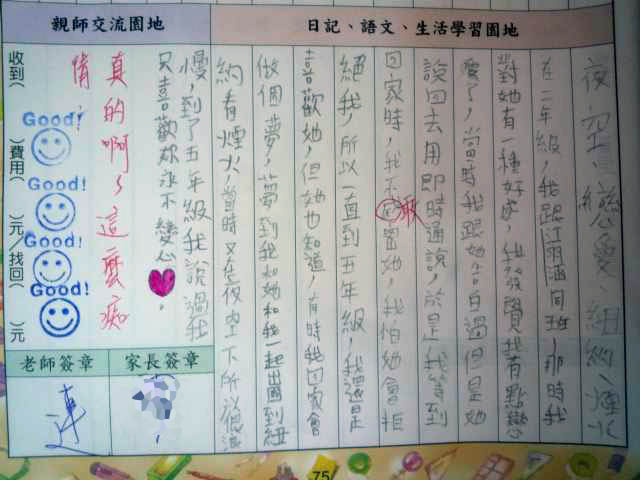 日記、語文、生活學習園地
夜空、戀愛、紐約、煙火
在二年級,我跟同班,那時我
對她有一種好感,我發覺我有點戀
愛了,當時我跟她告白過但是她
說回去用即時通說,於是我等到
回家時,我不敢密她,我怕她會拒
絕我,所以一直到五年級,我還是
喜歡她,但她也知道,有時我回家會
做個夢,夢到我和她和我一起出國到紐
約看煙火,當時又在夜空下所以很浪
慢,到了五年級我說過我
只喜歡妳永不變心。
親師交流園地
真的啊,這麼痴
情
Good!
Good!
Good!
Good!
收到( )費用( )元/找回( )元
家長簽章
老師簽章
連
75